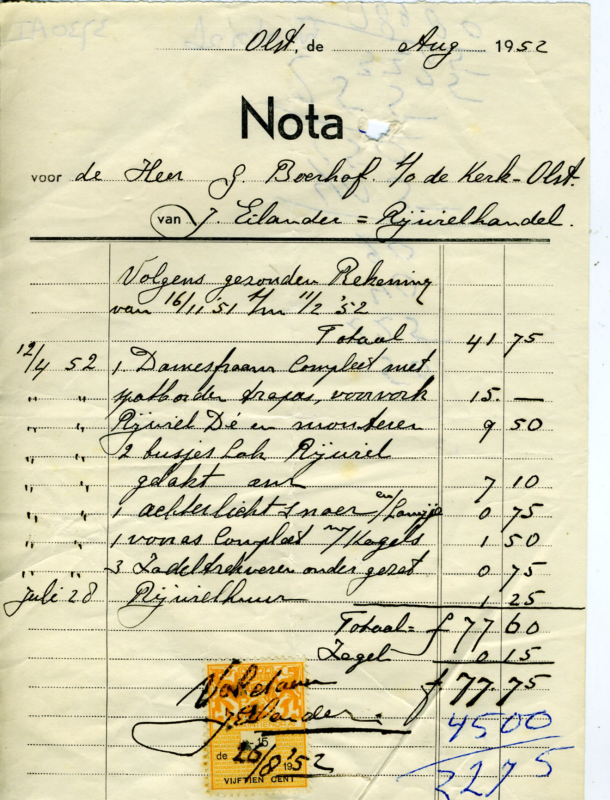 Olst, de Aug 1952
Nota
voor de Heer G. Boerhof. t/o de Kerk - Olst.
van J. Eilander = Rijwielhandel.
Volgens gezonden Rekening
van 16/11 '51 t/m 11/2 '52
Totaal 41 75
12/4 52 1 Damesfraam Compleet met
" " spatborden trapas, voorvork 15. —
" " Rijwiel De en monteren 9 50
" " 2 busjes Lak Rijwiel
" " gelakt enz 7 10
" " 1 achterlicht snoer en/Lampje 0 75
" " 1 vooras Compleet m/Kogels 1 50
" " 3 Zadeltrekveren onder gezet 0 75
juli 28 Rijwielhuur 1 25
Totaal = f 77 60
Zegel 0 15
f 77.75
Voldaan
J. Eilander.
4500
3275
15
de 26/8 1952
VIJFTIEN CENT